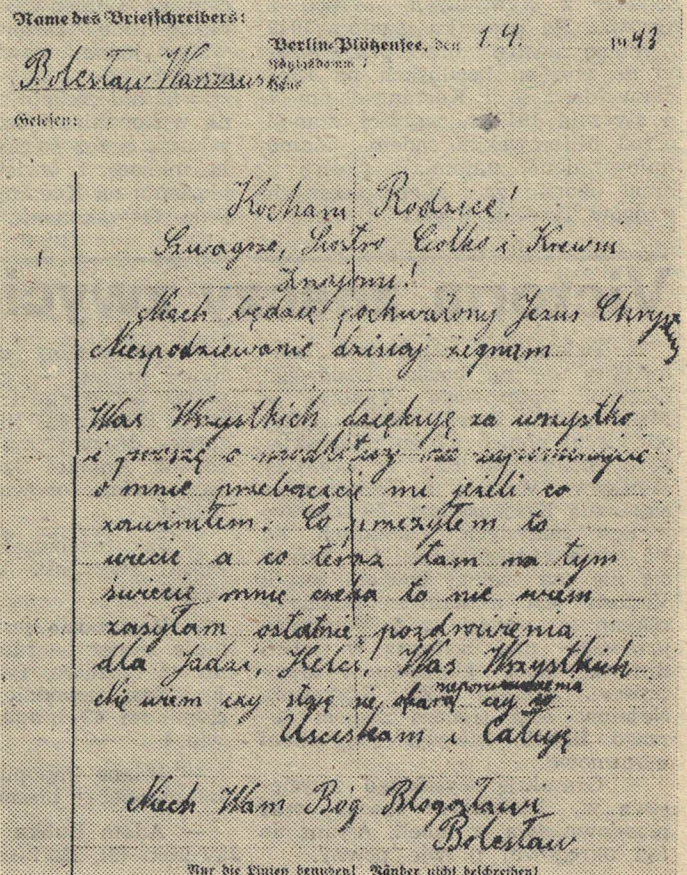 Name des Briefschreibers:
Berlin-Plötzensee, den 1.4. 1943
Bolesław Warszawski
Königsdamm 7
Haus
Gelesen:
Kochani Rodzice!
Szwagrze, Siostro Ciotko i Krewni
Znajomi!
Niech będzie pochwalony Jezus Chrystus
Niespodziewanie dzisiaj żegnam
Was Wszystkich dziękuję za wszystko
i proszę o modlitwy nie zapominajcie
o mnie przebaczcie mi jeżeli co
zawiniłem. Co przeżyłem to
wiecie a co teraz tam na tym
świecie mnie czeka to nie wiem
zasyłam ostatnie pozdrowienia
dla Jadzi, Helci, Was Wszystkich
Nie wiem czy staję się ofiarą czy
Usciskam i Całuję
Niech Wam Bóg Błogosławi
Bolesław
Nur die Linien benutzen! Ränder nicht beschreiben!